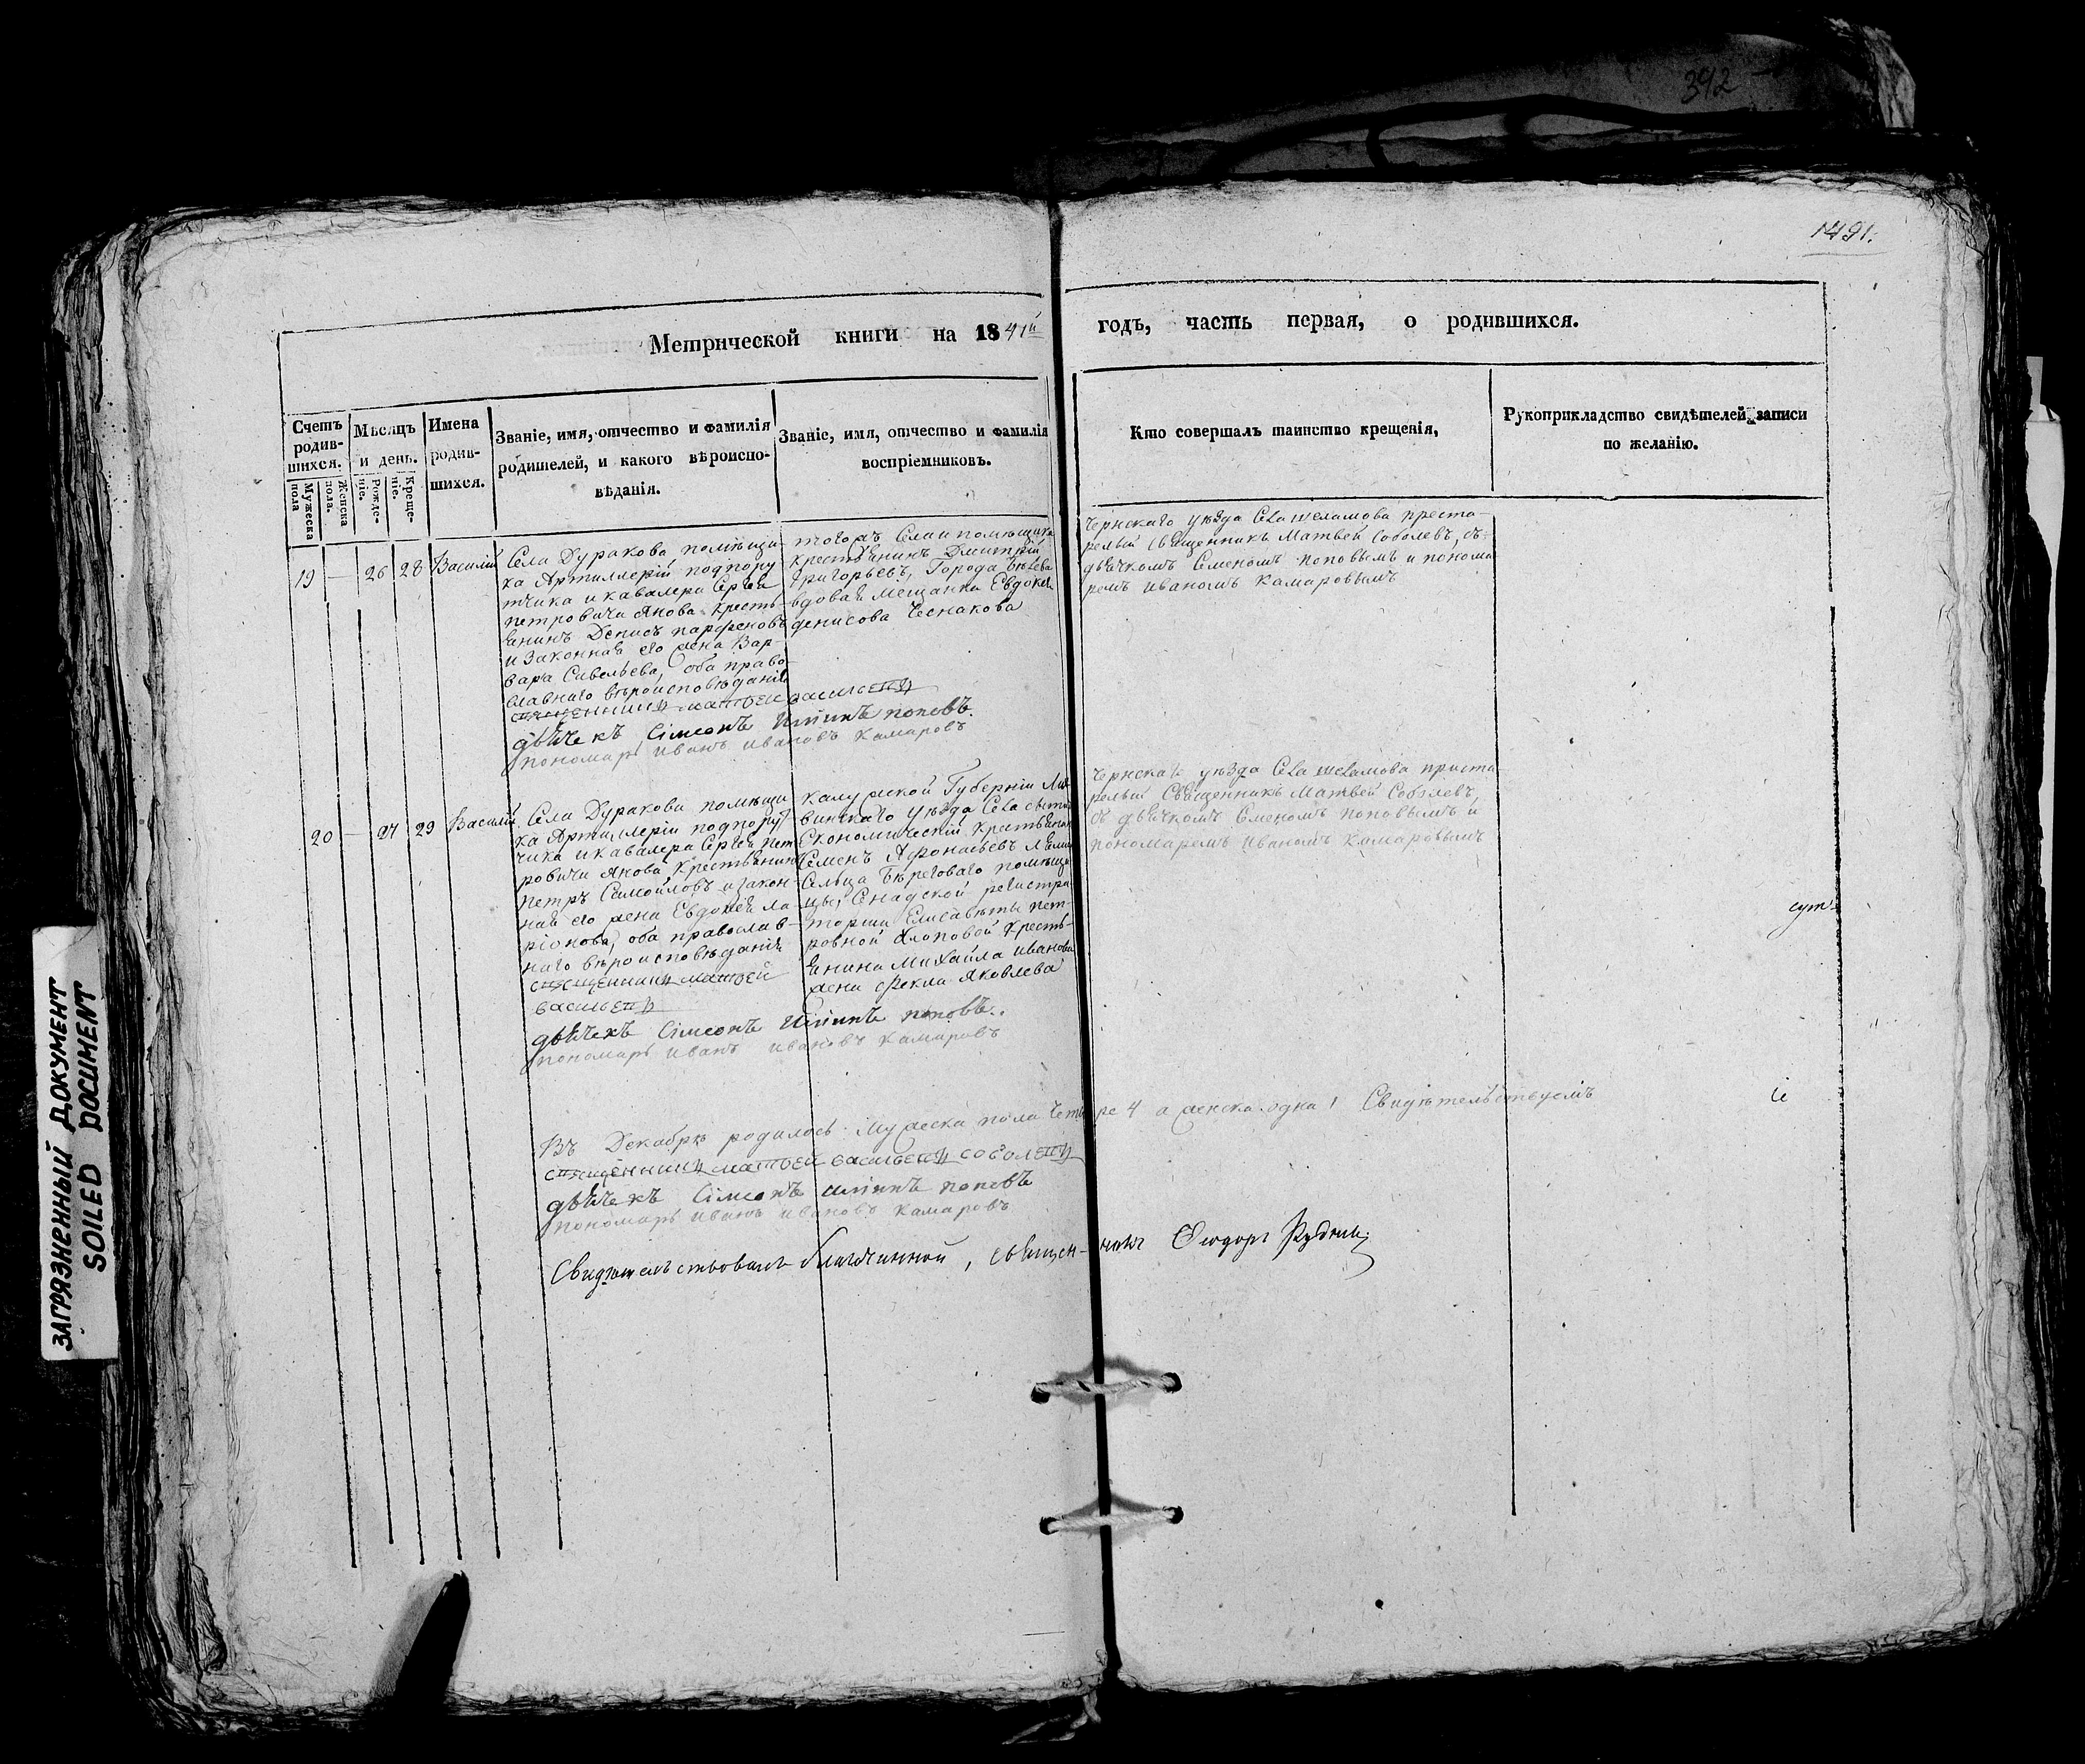 392
1491.
Метрической книги на 1841й годъ, часть первая, о родившихся.
Счетъ родив-
шихся.
Мужеска пола
Женска пола.
Мѣсяцъ
и день.
Рожде-
ніе.
Креще-
ніе.
Имена
родив-
шихся.
Званіе, имя, отчество и фамилія
родителей, и какого вѣроиспо-
вѣданія.
Званіе, имя, отчество и фамилія
воспріемниковъ.
Кто совершалъ таинство крещенія,
Рукоприкладство свидѣтелей записи
по желанію.
19 — 26 28 Василій
Села Дуракова помѣщи-
ка Артиллеріи подпору
тчика и кавалера Сергея
петровича Янова кресть-
янинъ Денисъ парфеновъ
и законная его жена Вар-
вара Савельева, оба право
славнаго вѣроисповѣданія
тогожъ Села и помѣщика
крестьянинъ Дмитрій
Григорьевъ, Города Бѣлева
вдовая мещанка Евдокея
денисова Чеснакова
Чернскаго уѣзда Села шеламова преста-
релый священникъ Матвей Соболевъ, съ
дьячкомъ Семеномъ поповымъ и понома
ремъ иваномъ Камаровымъ
священникъ матвей васильевъ
дьячекъ Сімеонъ Ильинъ поповъ.
пономарь иванъ ивановъ Камаровъ
20 — 27 29 Василій
Села Дуракова помѣщи
ка Артиллеріи подпору
чика и кавалера Сергея пет
ровича Янова крестьянинъ
петръ Самойловъ и закон-
ная его жена Евдокея ла-
ріонова, оба православ-
наго вѣроисповѣданія
калужской Губерніи Лих
винскаго уѣзда Села
Економическій крестьянинъ
Семенъ Афонасьевъ
Сельца Берегова́го помѣщи
цы, Сенадской регистра
торши Елисаветы пет-
ровной Хлоповой кресть-
янина Михайла иванова
жена Фекла Яковлева
Чернскаго уѣзда Села шеламова приста
релый Священникъ Матвей Соболевъ,
съ дьячкомъ Семеномъ поповымъ и
пономаремъ иваномъ Камаровымъ
священникъ матвей
васильевъ
дьячекъ Сімеонъ Ильинъ поповъ.
пономарь иванъ ивановъ Камаровъ
Въ Декабрѣ родилось Мужеска пола четыре 4 а женска одна 1 Свидѣтельствуемъ
священникъ матвей васильевъ соболевъ
дьячекъ Сімеонъ Ильинъ поповъ
пономарь иванъ ивановъ Камаровъ
Свидѣтельствовалъ благочинной, священникъ Ѳеодоръ
ЗАГРЯЗНЕННЫЙ ДОКУМЕНТ
SOILED DOCUMENT